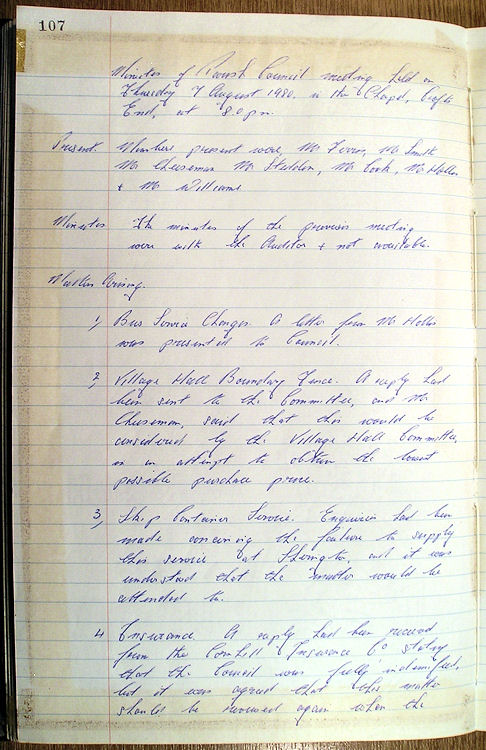 107
Minutes of Parish Council meeting held on
Thursday 7 August 1980, in the Chapel,
End, at 8.0 pm.
Present. Members present were, Mr Mr Smith
Mr Cheeseman Mr Mr Cook, Mr Hollis
& Mr Williams
Minutes The minutes of the previous meeting
were with the Auditor & not available.
Matters Arising.
1, Bus Service Changes. A letter from Mr Hollis
was presented to Council.
2, Village Hall Boundary Fence. A reply had
been sent to the Committee, and Mr
Cheeseman, said that this would be
considered by the Village Hall Committee,
in an attempt to obtain the lowest
possible purchase price.
3, Skip Container Service. Enquiries had been
made concerning the failure to supply
this service at and it was
understood that the matter would be
attended to.
4 Insurance. A reply had been received
from the Cornhill Insurance Co stating
that the Council was fully indemnified,
but it was agreed that this matter
should be reviewed again when the